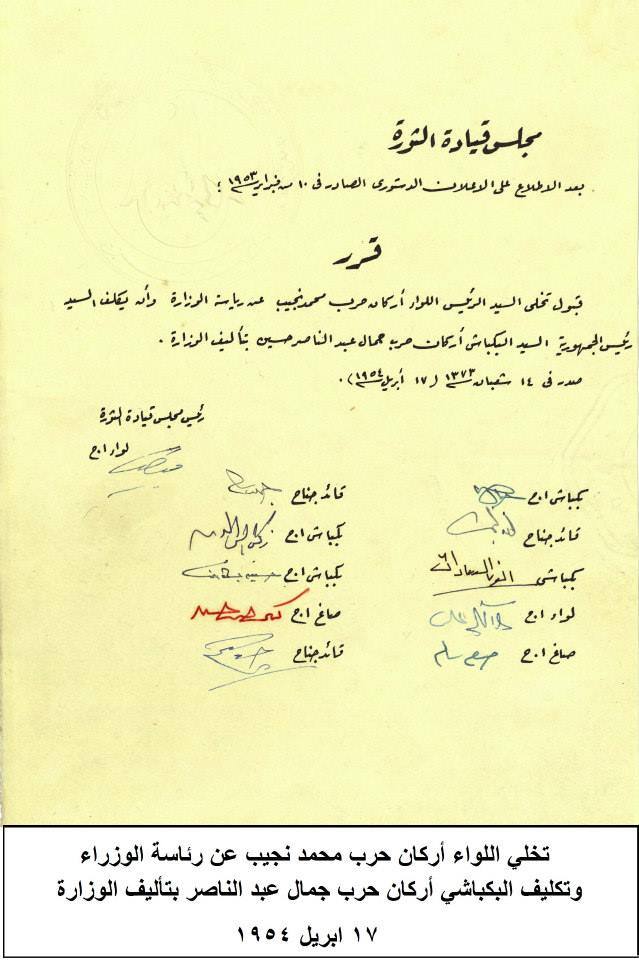 مجلس قيادة الثورة
بعد الاطلاع على الاعلان الدستورى الصادر فى ١٠ من فبراير ١٩٥٣ ؛
قرر
قبول تخلى السيد الرئيس اللواء أركان حرب محمد نجيب عن رياسة الوزارة وأن يكلف السيد
رئيس الجمهورية السيد البكباشى أركان حرب جمال عبد الناصر حسين بتأليف الوزارة .
صدر فى ١٤ شعبان ١٣٧٣ ( ١٧ أبريل ١٩٥٤ ) .
رئيس مجلس قيادة الثورة
لواء ا.ح
بكباشى ا.ح
قائد جناح
قائد جناح
بكباشى ا.ح زكريا محيى الدين
بكباشى أنور السادات
بكباشى ا.ح حسين الشافعى
لواء ا.ح
صاغ ا.ح كمال الدين حسين
صاغ ا.ح صلاح سالم
قائد جناح
تخلي اللواء أركان حرب محمد نجيب عن رئاسة الوزراء
وتكليف البكباشي أركان حرب جمال عبد الناصر بتأليف الوزارة
١٧ ابريل ١٩٥٤